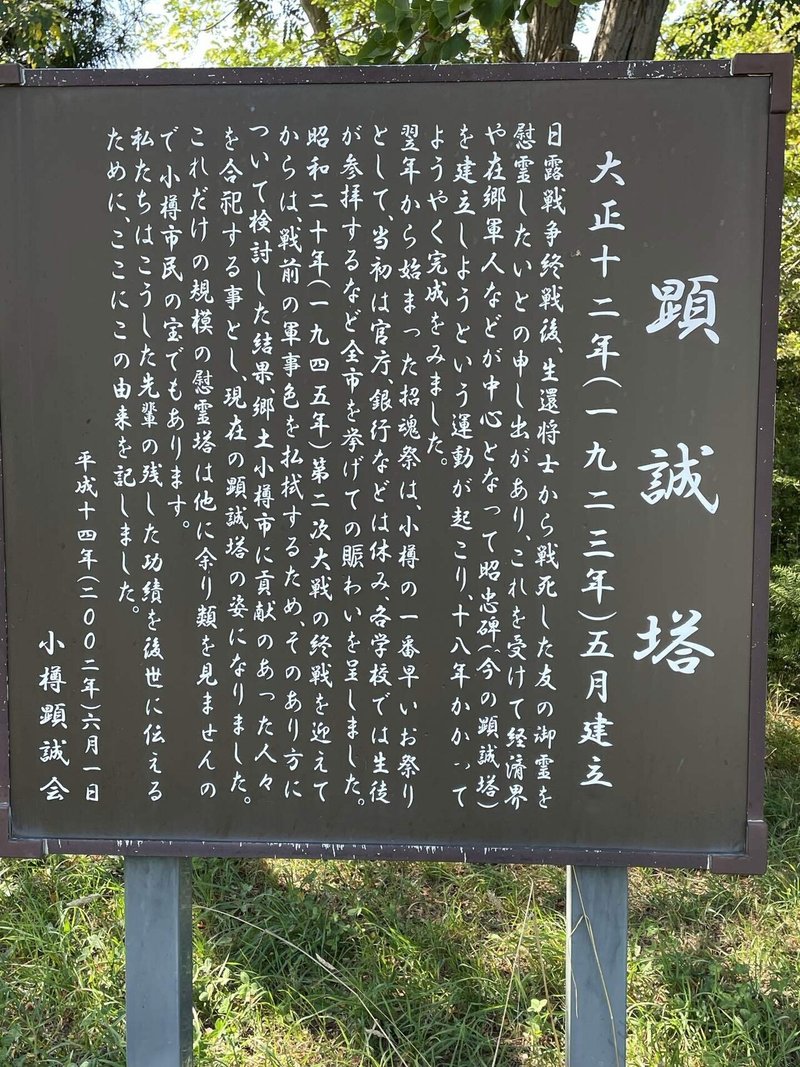 顕誠塔
大正十二年(一九二三年)五月建立
日露戦争終戦後、生還将士から戦死した友の御霊を
慰霊したいとの申し出があり、これを受けて経済界
や在郷軍人などが中心となって昭忠碑(今の顕誠塔)
を建立しようという運動が起こり、十八年かかって
ようやく完成をみました。
翌年から始まった招魂祭は、小樽の一番早いお祭り
として、当初は官庁、銀行などは休み、各学校では生徒
が参拝するなど全市を挙げての賑わいを呈しました。
昭和二十年(一九四五年)第二次大戦の終戦を迎えて
からは、戦前の軍事色を払拭するため、そのあり方に
ついて検討した結果、郷土小樽市に貢献のあった人々
を合祀する事とし、現在の顕誠塔の姿になりました。
これだけの規模の慰霊塔は他に余り類を見ませんの
で小樽市民の宝でもあります。
私たちはこうした先輩の残した功績を後世に伝える
ために、ここにこの由来を記しました。
平成十四年(二〇〇二年)六月一日
小樽顕誠会